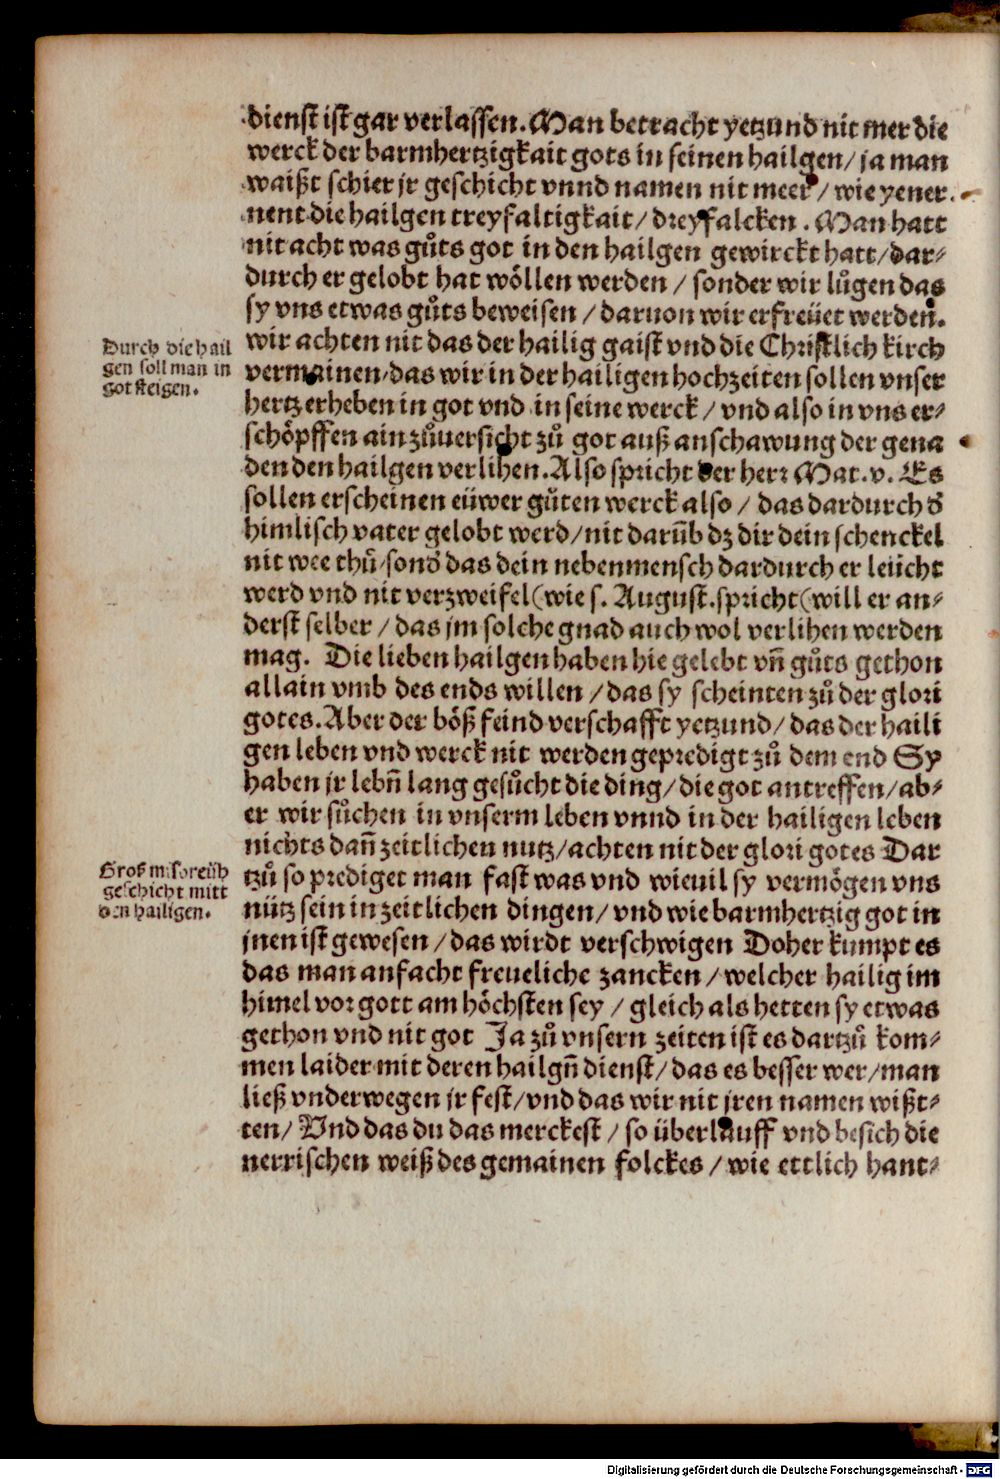 dienst ist gar verlassen. Man betracht yetzund nit mer die
werck der barmhertzigkait gots in seinen hailgen/ ja man
waißt schier jr geschicht vnnd namen nit meer/ wie yener
nent die hailgen treyfaltigkait/ dreyfalcken. Man hatt
nit acht was gůts got in den hailgen gewirckt hatt/ dar⸗
durch er gelobt hat wöllen werden/ sonder wir lůgen das
sy vns etwas gůts beweisen/ daruon wir erfreüet werden.
Durch die hail
gen soll man in
got steigen.
wir achten nit das der hailig gaist vnd die Christlich kirch
vermainen/ das wir in der hailigen hochzeiten sollen vnser
hertz erheben in got vnd in seine werck/ vnd also in vns er⸗
schöpffen ain zůuersicht zů got auß anschawung der gena
den den hailgen verlihen. Also spricht der herr Mat. v. Es
sollen erscheinen eüwer gůten werck also/ das dardurch d̕
himlisch vater gelobt werd/ nit darūb dz dir dein schenckel
nit wee thů/ sond̕ das dein nebenmensch dardurch er leücht
werd vnd nit verzweifel (wie s. August. spricht( will er an⸗
derst selber/ das jm solche gnad auch wol verlihen werden
mag. Die lieben hailgen haben hie gelebt vn̄ gůts gethon
allain vmb des ends willen/ das sy scheinten zů der glori
gotes. Aber der böß feind verschafft yetzund/ das der haili
gen leben vnd werck nit werden gepredigt zů dem end Sy
haben jr lebn̄ lang gesůcht die ding/ die got antreffen/ ab⸗
er wir sůchen in vnserm leben vnnd in der hailigen leben
nichts dan̄ zeitlichen nutz/ achten nit der glori gotes Dar
Groß mißbreüch
geschicht mitt
den hailigen.
tzů so prediget man fast was vnd wieuil sy vermögen vns
nütz sein in zeitlichen dingen/ vnd wie barmhertzig got in
jnen ist gewesen/ das wirdt verschwigen Doher kumpt es
das man anfacht freueliche zancken/ welcher hailig im
himel vor gott am höchsten sey/ gleich als hetten sy etwas
gethon vnd nit got Ja zů vnsern zeiten ist es dartzů kom⸗
men laider mit deren hailgn̄ dienst/ das es besser wer/ man
ließ vnderwegen jr fest/ vnd das wir nit jren namen wißt⸗
ten/ Vnd das du das merckest/ so überlauff vnd besich die
nerrischen weiß des gemainen folckes/ wie ettlich hant⸗
Digitalisierung gefördert durch die Deutsche Forschungsgemeinschaft - DFG